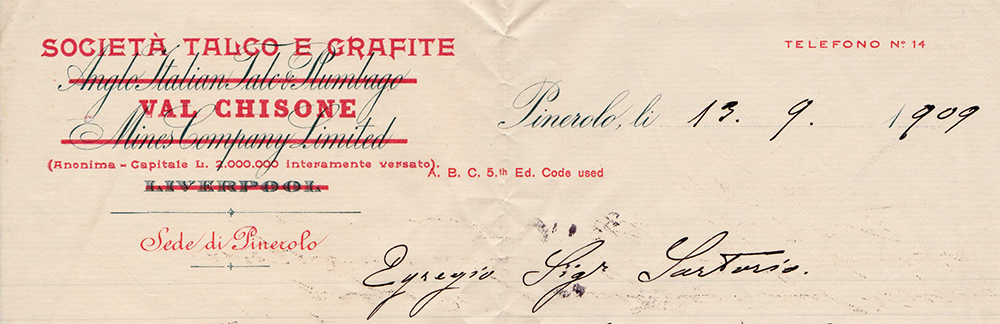 SOCIETÀ TALCO E GRAFITE
Anglo Italian Talc & Plumbago
VAL CHISONE
Mines Company Limited
(Anonima - Capitale L. 2.000.000 interamente versato).
LIVERPOOL
Sede di Pinerolo
TELEFONO Nº 14
Pinerolo, li 13. 9. 1909
A. B. C. 5.th Ed. Code used
Egregio Sigr Sartorio.